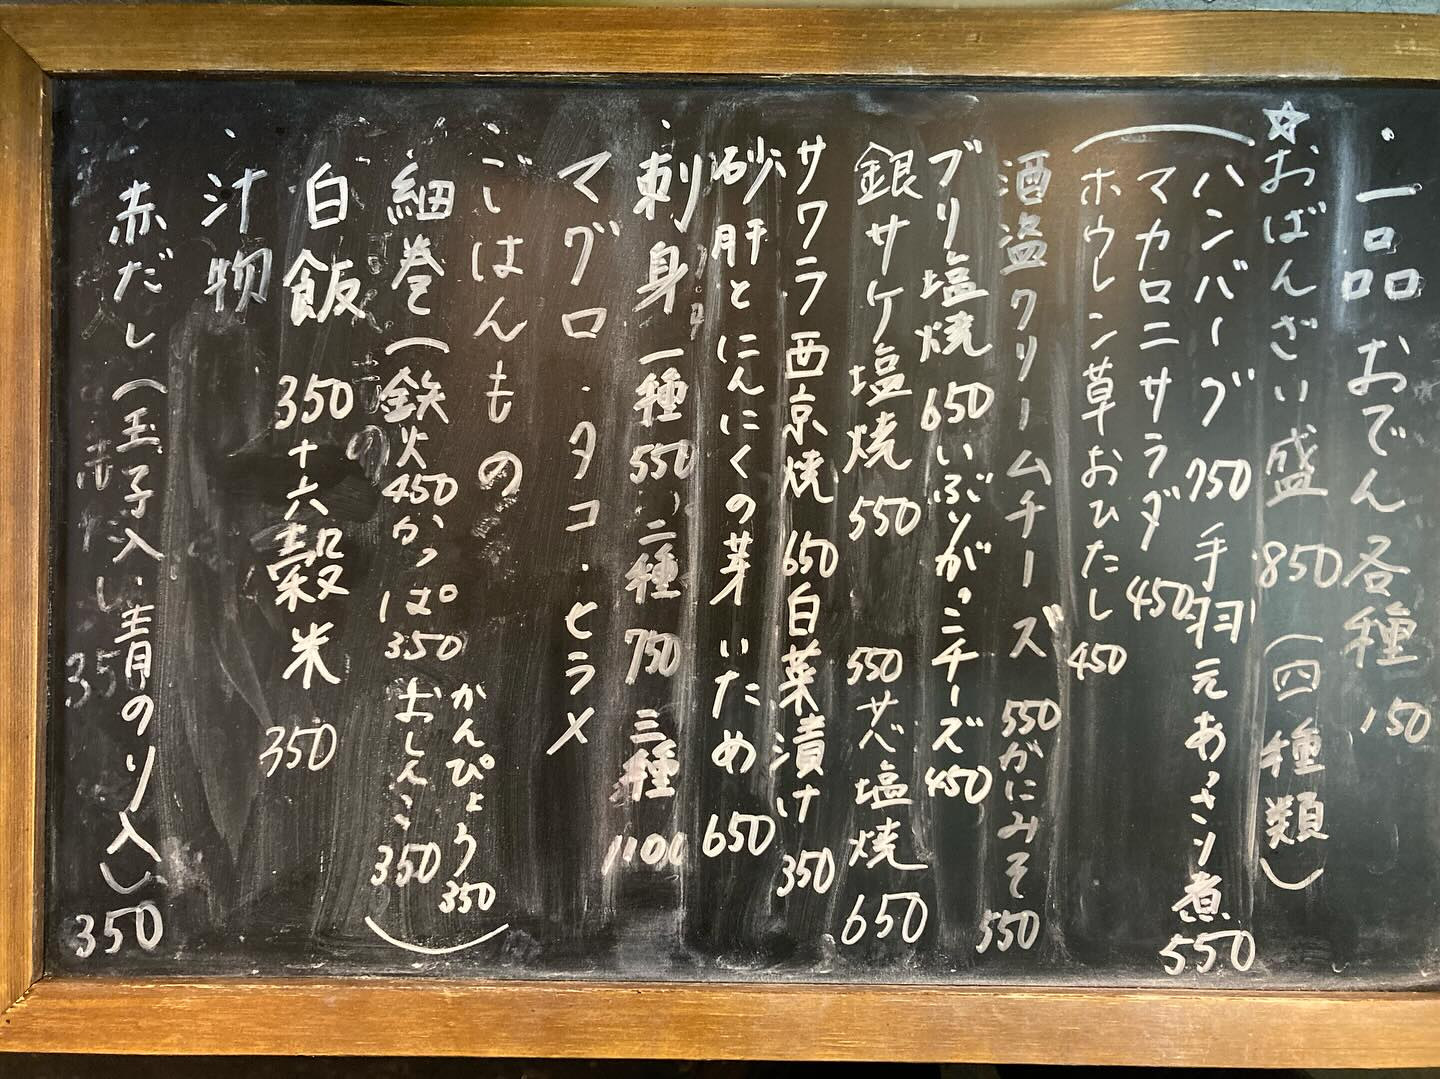 ・一品 おでん各種 150
☆おばんざい盛 850 (四種類)
(ハンバーグ 750 手羽元あっさり煮 550
マカロニサラダ 450
ホウレン草おひたし 450
酒盗クリームチーズ 550 かにみそ 550
ブリ塩焼 650 いぶりがっこチーズ 450
銀サケ塩焼 550 サバ塩焼 650
550
サワラ西京焼 650 白菜漬け 350
砂肝とにんにくの芽いため 650
・刺身 一種 550 二種 750 三種 1100
マグロ・タコ・ヒラメ
・ごはんもの
細巻(鉄火 450 かっぱ 350 おしんこ 350
かんぴょう 350)
白飯 350 十六穀米 350
・汁物
赤だし(玉子入り、青のり入り) 350